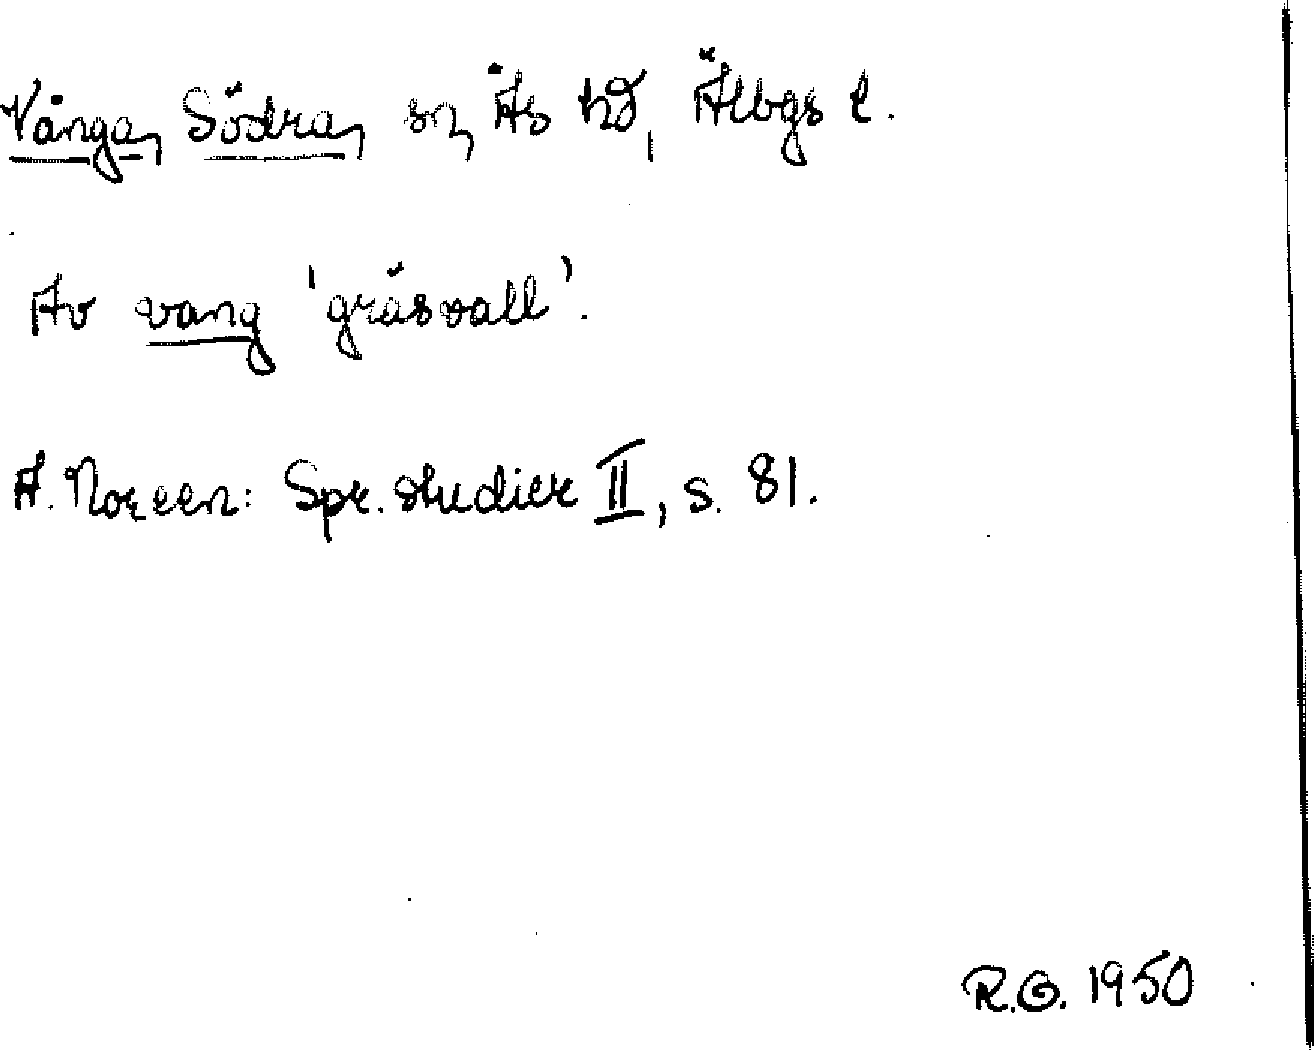 Vånga, Södra, sn, Ås hd, Älvbgs l.
Av vang 'gräsvall'.
A. Noreen: Spr. studier II, s. 81.
R.G. 1950